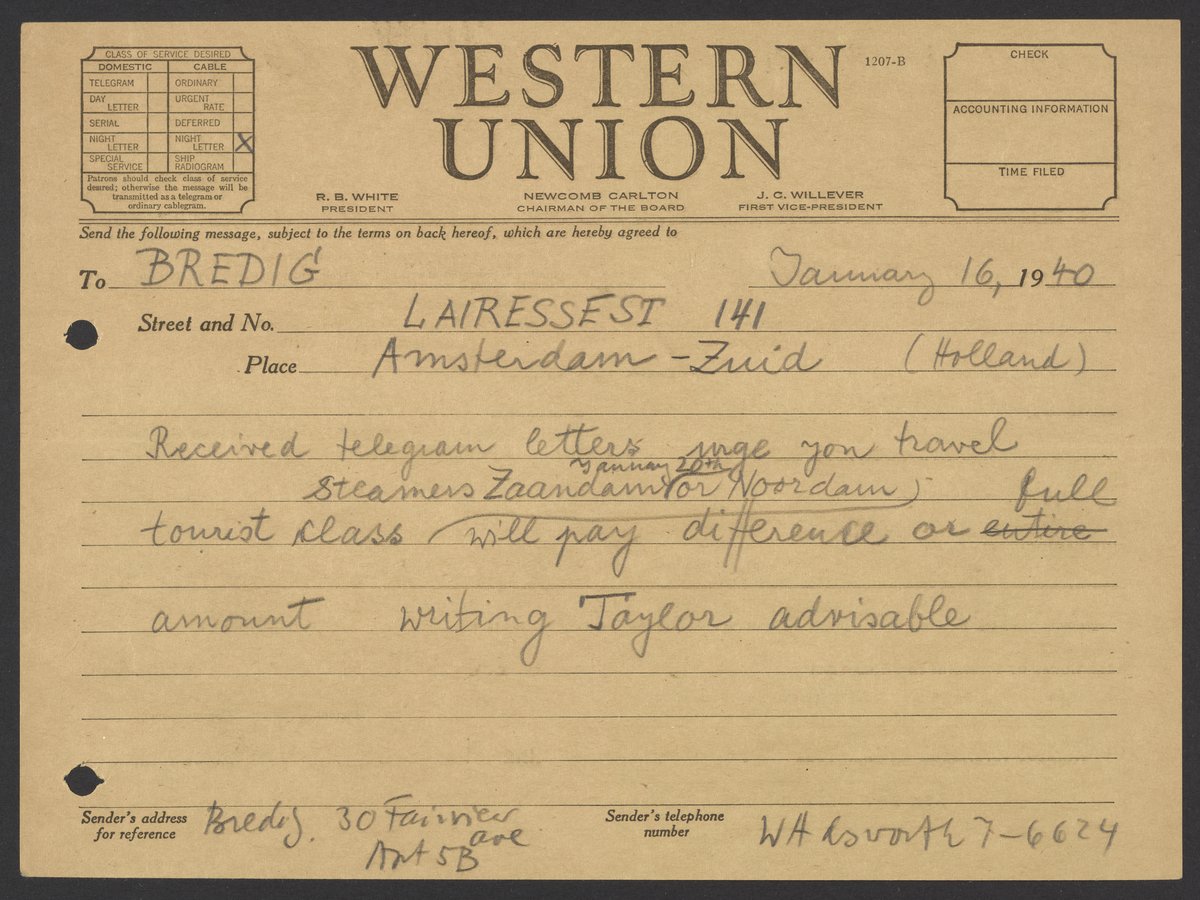 CLASS OF SERVICE DESIRED
DOMESTIC CABLE
TELEGRAM ORDINARY
DAY LETTER URGENT RATE
SERIAL DEFERRED
NIGHT LETTER NIGHT LETTER X
SPECIAL SERVICE SHIP RADIOGRAM
Patrons should check class of service
desired; otherwise the message will be
transmitted as a telegram or
ordinary cablegram.
WESTERN
UNION
1207-B
R. B. WHITE
PRESIDENT
NEWCOMB CARLTON
CHAIRMAN OF THE BOARD
J. C. WILLEVER
FIRST VICE-PRESIDENT
CHECK
ACCOUNTING INFORMATION
TIME FILED
Send the following message, subject to the terms on back hereof, which are hereby agreed to
To BREDIG January 16, 1940
Street and No. LAIRESSEST 141
Place Amsterdam - Zuid (Holland)
Received telegram letters urge you travel
January 20th
steamers Zaandam or Noordam full
tourist class will pay difference or entire
amount writing Taylor advisable
Sender's address
for reference
Bredig. 30 Fairview
ave
Apt 5B
Sender's telephone
number
WAdsworth 7-6624